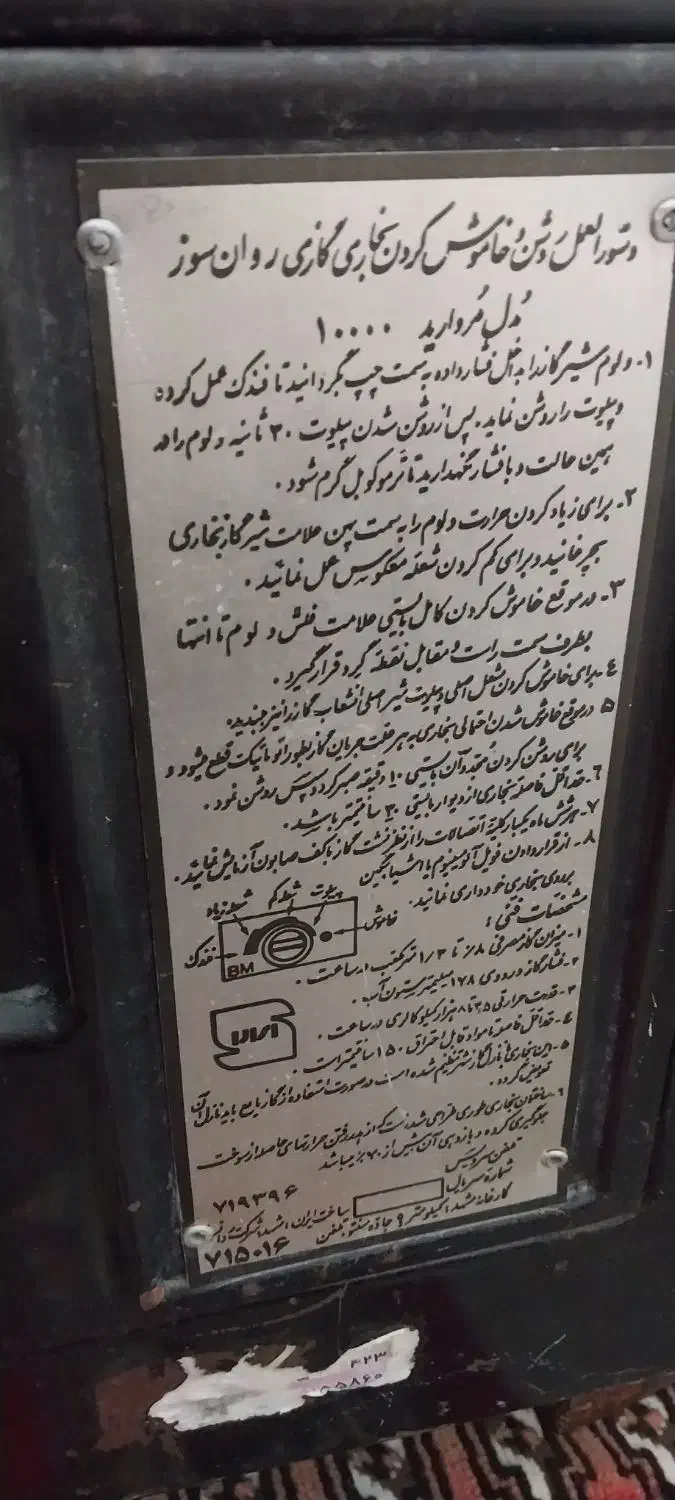 دستورالعمل روشن و خاموش کردن بخاری گازی روان سوز
مُدل مُروارید ۱۰۰۰۰
۱- ولوم شیر گاز را به داخل فشار داده به سمت چپ بگردانید تا فندک عمل کرده
و پیلوت را روشن نماید. پس از روشن شدن پیلوت ۳۰ ثانیه ولوم را در
همین حالت و با فشار نگهدارید تا ترموکوبل گرم شود.
۲- برای زیاد کردن حرارت ولوم را به سمت پهن علامت شیر گاز بخاری
بچرخانید و برای کم کردن شعله معکوس عمل نمائید.
۳- در موقع خاموش کردن کامل بایستی علامت فلش ولوم تا انتها
بطرف سمت راست و مقابل نقطه گرد قرار گیرد.
۴- برای خاموش کردن مشعل اصلی و پیلوت شیر اصلی انشعاب گاز را نیز ببندید.
۵ در موقع خاموش شدن احتمالی بخاری به هر علت جریان گاز بطور اتوماتیک قطع میشود و
برای روشن کردن مجدد آن بایستی ۱۰ دقیقه صبر کرد و سپس روشن نمود.
۶- حداقل فاصله بخاری از دیوار بایستی ۳۰ سانتیمتر باشد.
۷- هر شش ماه یکبار کلیه اتصالات را از نظر نشت گاز با کف صابون آزمایش نمائید.
۸- از قرار دادن فویل آلومینیوم یا اشیاء سنگین
بر روی بخاری خودداری نمائید.
شعله زیاد
شعله کم
پیلوت
خاموش
فندک
BM
مشخصات فنی:
۱- میزان گاز مصرفی ۰/۸ تا ۱/۳ متر مکعب در ساعت.
۲- فشار گاز ورودی ۱۷۸ میلیمتر ستون آب.
۳- قدرت حرارتی ۲/۵ تا ۸ هزار کیلو کالری در ساعت.
۴- حداقل فاصله تا مواد قابل احتراق ۱۵۰ سانتیمتر است.
۵- این بخاری با نازل گاز شهر تنظیم شده است در صورت استفاده از گاز مایع باید نازل آن
تعویض گردد.
۶- ساختمان بخاری طوری طراحی شده است که از هدر رفتن حرارتهای حاصله از سوخت
جلوگیری کرده و بازدهی آن بیش از ۷۰٪ میباشد
تلفن سرویس ۷۱۹۳۹۶
شماره سریال
ساخت ایران، مشهد، شرکت
کارخانه مشهد: کیلومتر ۹ جاده سنتو تلفن ۷۱۵۰۱۶
۳۲۳
۵۵۸۶۰